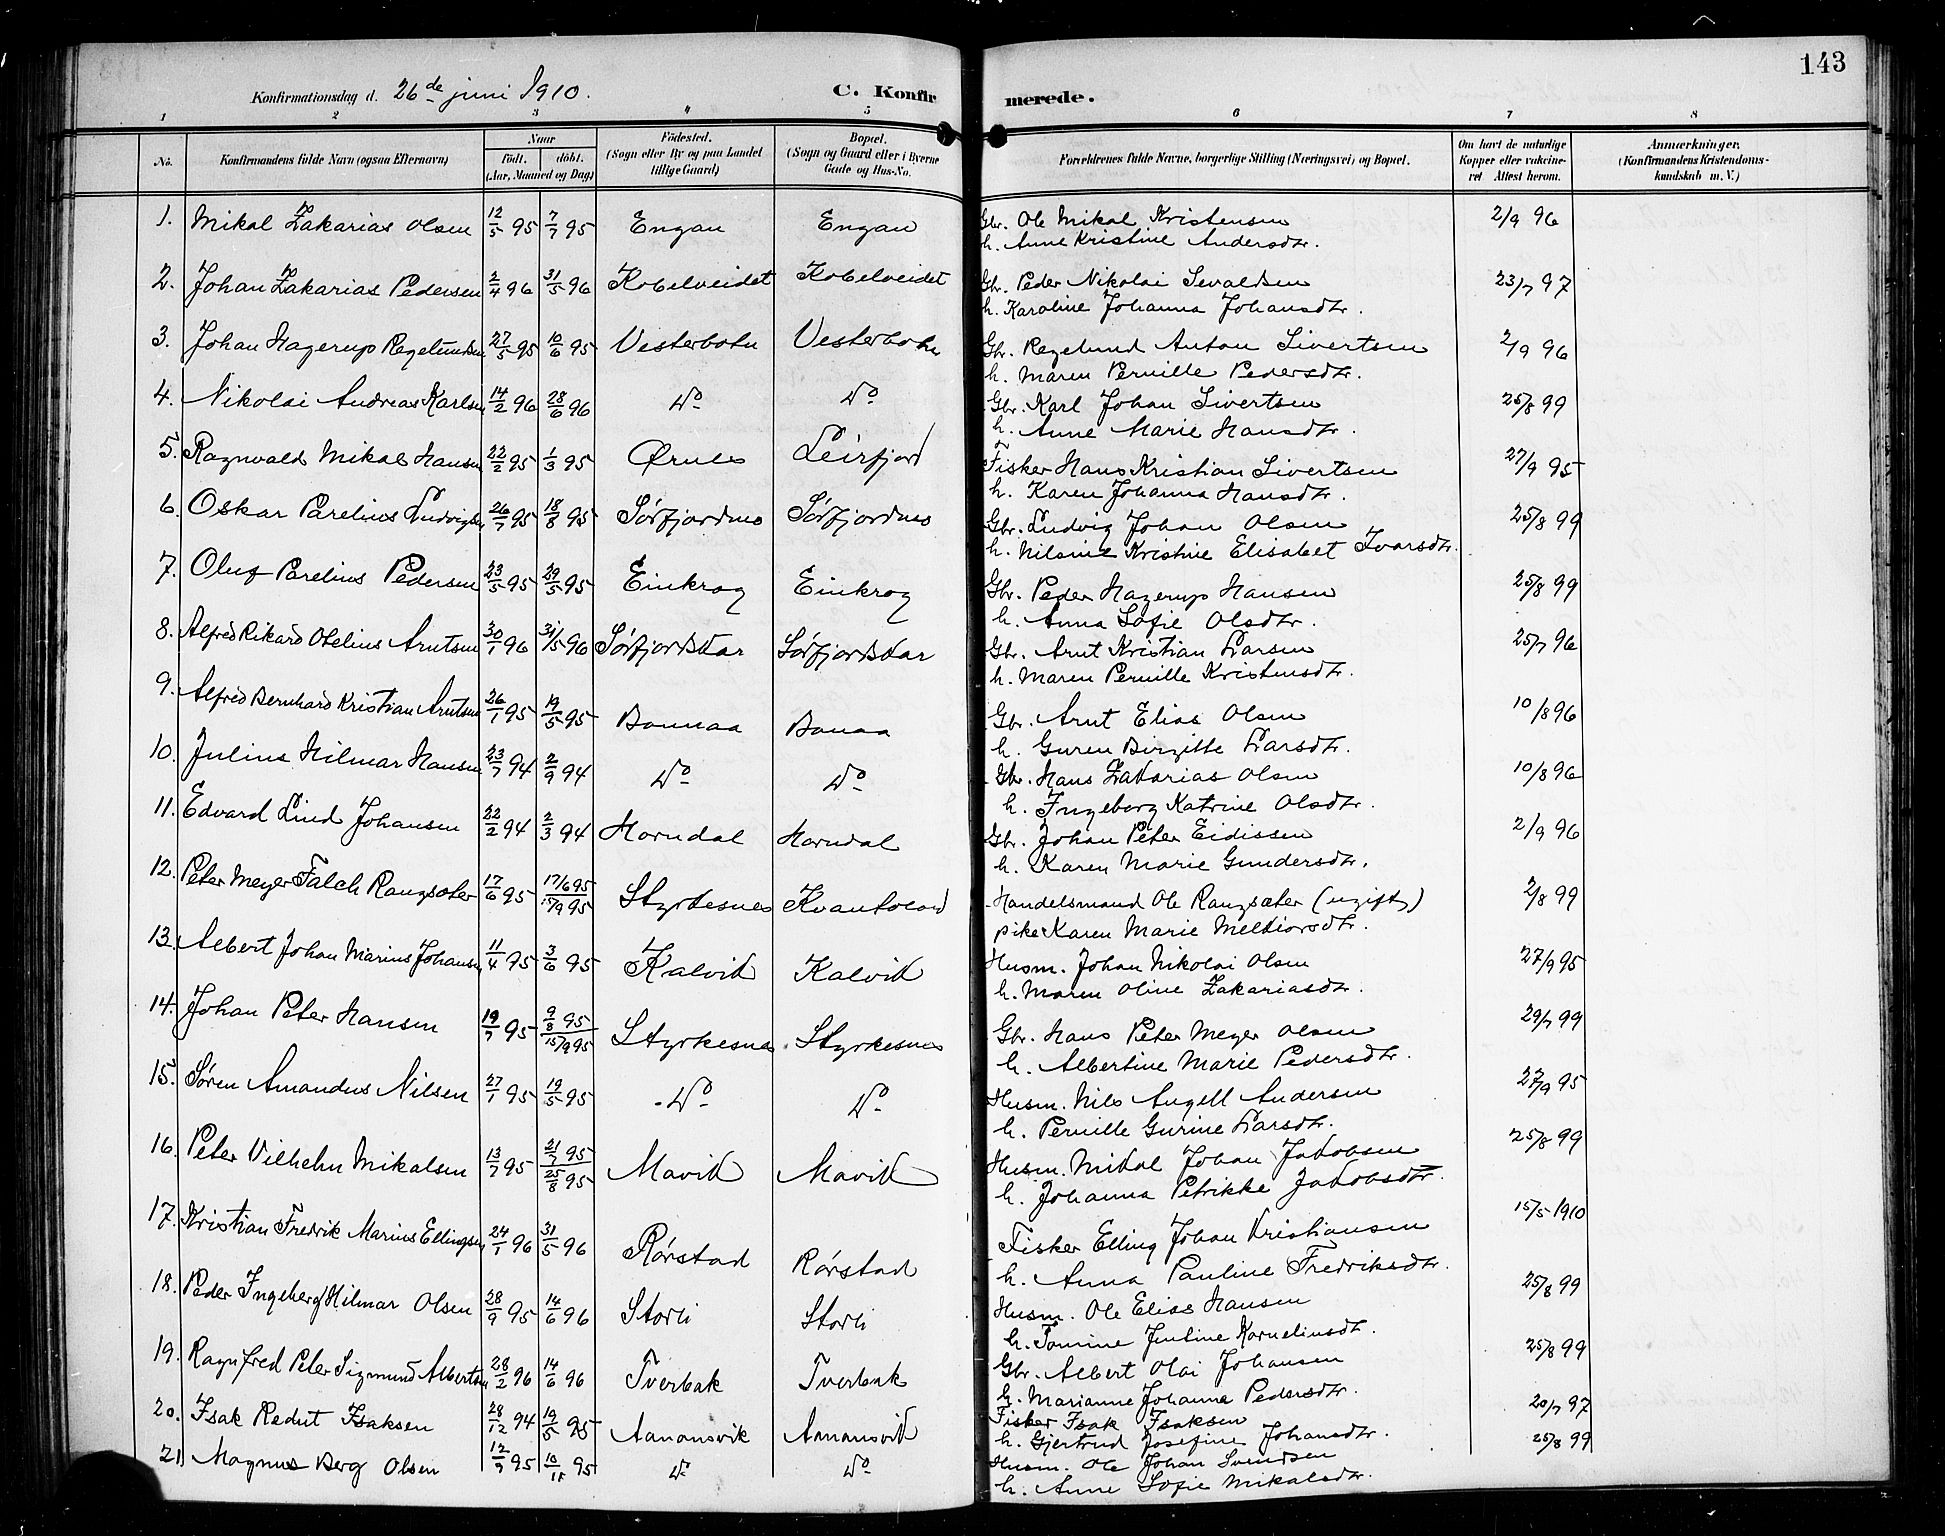 143
Konfirmationsdag d. 26de juni 1910.
C. Konfirmerede.
1 2 3 4 5 6 7 8
No.
Konfirmandens fulde Navn (ogsaa Efternavn)
Naar
födt. döbt.
(Aar, Maaned og Dag)
Födested.
(Sogn eller By og paa Landet
tillige Gaard)
Bopæl.
(Sogn og Gaard eller i Byerne
Gade og Hus-No.
Forældrenes fulde Navne, borgerlige Stilling (Næringsvei) og Bopæl.
Om havt de naturlige
Kopper eller vakcine-
ret Attest herom.
Anmærkninger.
(Konfirmandens Kristendoms-
kundskab m. V.)
1. Mikal Zakarias Olsen 12/5 95 7/7 95 Engan Engan Gbr. Ole Mikal Kristensen 2/9 96
h. Anne Kristine Andersdtr.
2. Johan Zakarias Pedersen 2/4 96 31/5 96 Kobelveidet Kobelveidet Gbr. Peder Nikolai Sevaldsen 23/7 97
h. Karoline Johanna Johansdtr.
3. Johan Hagerup Regelundsen 27/5 95 10/6 95 Vesterbotn Vesterbotn Gbr. Regelund Antan Sivertsen 2/9 96
h. Maren Pernille Pedersdtr.
4. Nikolai Andreas Karlsen 14/2 96 28/6 96 Do Do Gbr. Karl Johan Sivertsen 25/8 99
h. Anne Marie Hansdtr.
5. Ragnvald Mikal Hansen 22/2 95 1/3 95 Ørnes Leirfjord Fisker Hans Kristian Sivertsen 27/9 95
h. Karen Johanna Hansdtr.
6. Oskar Parelius Ludvigsen 26/7 95 18/8 95 Sörfjordnes Sörfjordnes Gbr. Ludvig Johan Olsen 25/8 99
h. Nilsine Kristine Elisabet Ivarsdtr.
7. Oluf Parelius Pedersen 23/5 95 29/5 95 Einkrog Einkrog Gbr. Peder Hagerup Hansen 25/8 99
h. Anna Sofie Olsdtr.
8. Alfred Rikard Otelius Arntsen 30/1 96 31/5 96 Sörfjordskar Sörfjordskar Gbr. Arnt Kristian Larsen 25/7 96
h. Maren Pernille Kristensdtr.
9. Alfred Bernhard Kristian Arntsen 26/1 95 19/5 95 Bonnaa Bonaa Gbr. Arnt Elias Olsen 10/8 96
h. Guren Birgitte Larsdtr.
10. Julius Hilmar Hansen 23/7 94 2/9 94 Do Do Gbr. Hans Zakarias Olsen 10/8 96
h. Ingeborg Katrine Olsdtr.
11. Edvard Lind Johansen 22/2 94 2/3 94 Horndal Horndal Gbr. Johan Peter Eidissen 2/9 96
h. Karen Marie Gundersdtr.
12. Peter Meyer Falch Rangsæter 17/6 95 17/6 95 15/9 95 Styrkesnes Kvantoland Handelsmand Ole Rangsæter (ugift) 2/8 99
pike Karen Marie Meltiorsdtr.
13. Albert Johan Marius Johansen 11/4 95 3/6 95 Kalvik Kalvik Husm. Johan Nikolai Olsen 27/9 95
h. Maren Oline Zakariasdtr.
14. Johan Peter Hansen 19/7 95 9/8 95 15/9 95 Styrkesnes Styrkesnes Gbr. Hans Peter Meyer Olsen 29/7 99
h. Albertine Marie Pedersdtr.
15. Søren Amandus Nilsen 27/1 95 19/5 95 Do Do Husm. Nils Angell Andersen 27/9 95
h. Pernille Gurine Larsdtr.
16. Peter Vilhelm Mikalsen 13/7 95 21/7 95 25/8 95 Mavik Mavik Husm. Mikal Johan Jakobsen 25/8 99
h. Johanna Petrikke Jakobsdtr.
17. Kristian Fredrik Marius Ellingsen 24/1 96 31/5 96 Rørstad Rørstad Fisker Elling Johan Kristiansen 15/5 1910
h. Anna Pauline Fredriksdtr.
18. Peder Ingeberg Hilmar Olsen 28/9 95 14/6 96 Storli Storli Husm. Ole Elias Hansen 25/8 99
h. Tomine Juline Korneliusdtr.
19. Ragnfred Peter Sigmund Albertsen 28/2 96 14/6 96 Tverbak Tverbak Gbr. Albert Olai Johansen 25/8 99
h. Marianne Johanna Pedersdtr.
20. Isak Redut Isaksen 28/12 94 19/5 95 Aanonsvik Amonsvik Fisker Isak Isaksen 20/7 97
h. Gjertrud Josefine Johansdtr.
21 Magnus Berg Olsen 12/9 95 10/11 95 Do Do Husm. Ole Johan Svendsen 25/8 99
h. Anne Sofie Mikalsdtr.